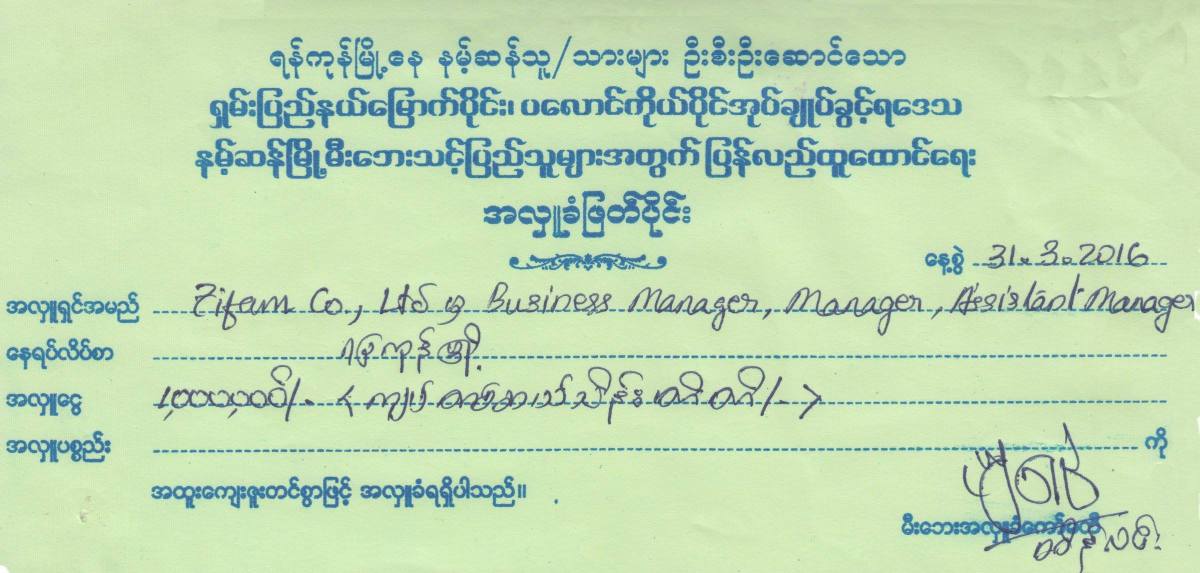 ရန်ကုန်မြို့နေ နမ့်ဆန်သူ/သားများ ဦးစီးဦးဆောင်သော
ရှမ်းပြည်နယ်မြောက်ပိုင်း၊ ပလောင်ကိုယ်ပိုင်အုပ်ချုပ်ခွင့်ရဒေသ
နမ့်ဆန်မြို့မီးဘေးသင့်ပြည်သူများအတွက် ပြန်လည်ထူထောင်ရေး
အလှူခံဖြတ်ပိုင်း
နေ့စွဲ 31.3.2016
အလှူရှင်အမည် Zifam Co., Ltd မှ Business Manager, Manager, Assistant Manager
နေရပ်လိပ်စာ ရန်ကုန်မြို့
အလှူငွေ ၁,၀၀၀,၀၀၀/- < ကျပ် တစ်ဆယ်သိန်း တိတိ/- >
အလှူပစ္စည်း ကို
အထူးကျေးဇူးတင်စွာဖြင့် အလှူခံရရှိပါသည်။
မီးဘေးအလှူခံကော်မတီ